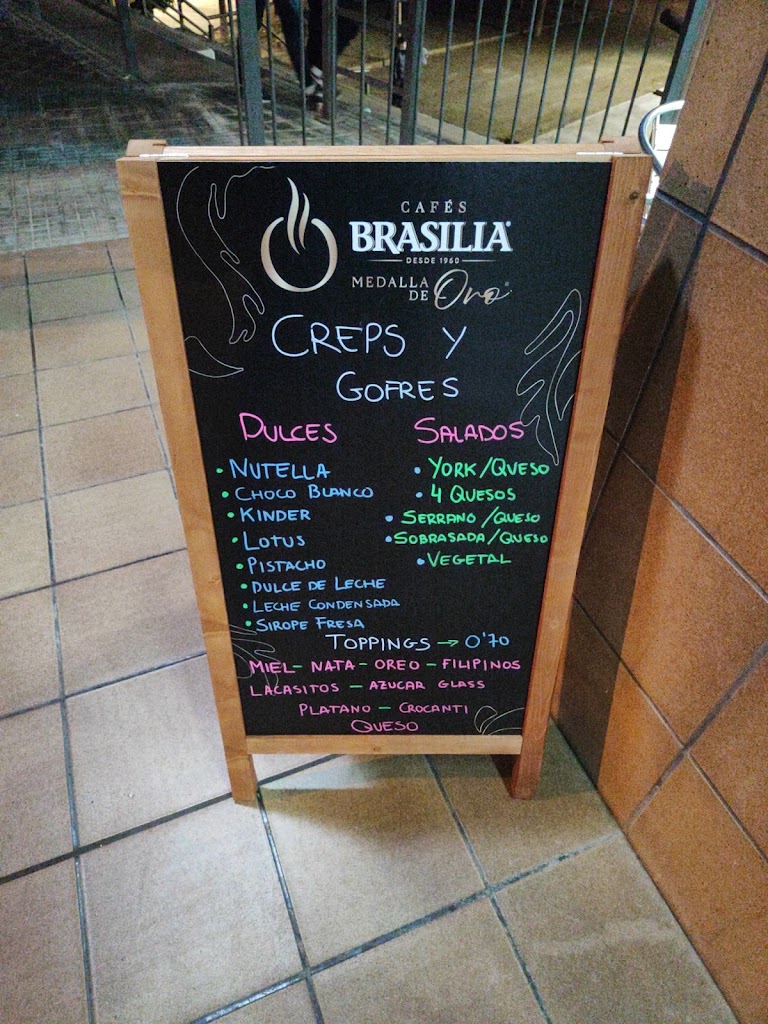 CAFÉS
BRASILIA®
DESDE 1960
MEDALLA
DE Oro®
CREPS Y
GOFRES
DULCES
• NUTELLA
• CHOCO BLANCO
• KINDER
• LOTUS
• PISTACHO
• DULCE DE LECHE
• LECHE CONDENSADA
• SIROPE FRESA
SALADOS
• YORK/QUESO
• 4 QUESOS
• SERRANO/QUESO
• SOBRASADA/QUESO
• VEGETAL
TOPPINGS → 0'70
MIEL - NATA - OREO - FILIPINOS
LACASITOS - AZUCAR GLASS
PLATANO - CROCANTI
QUESO